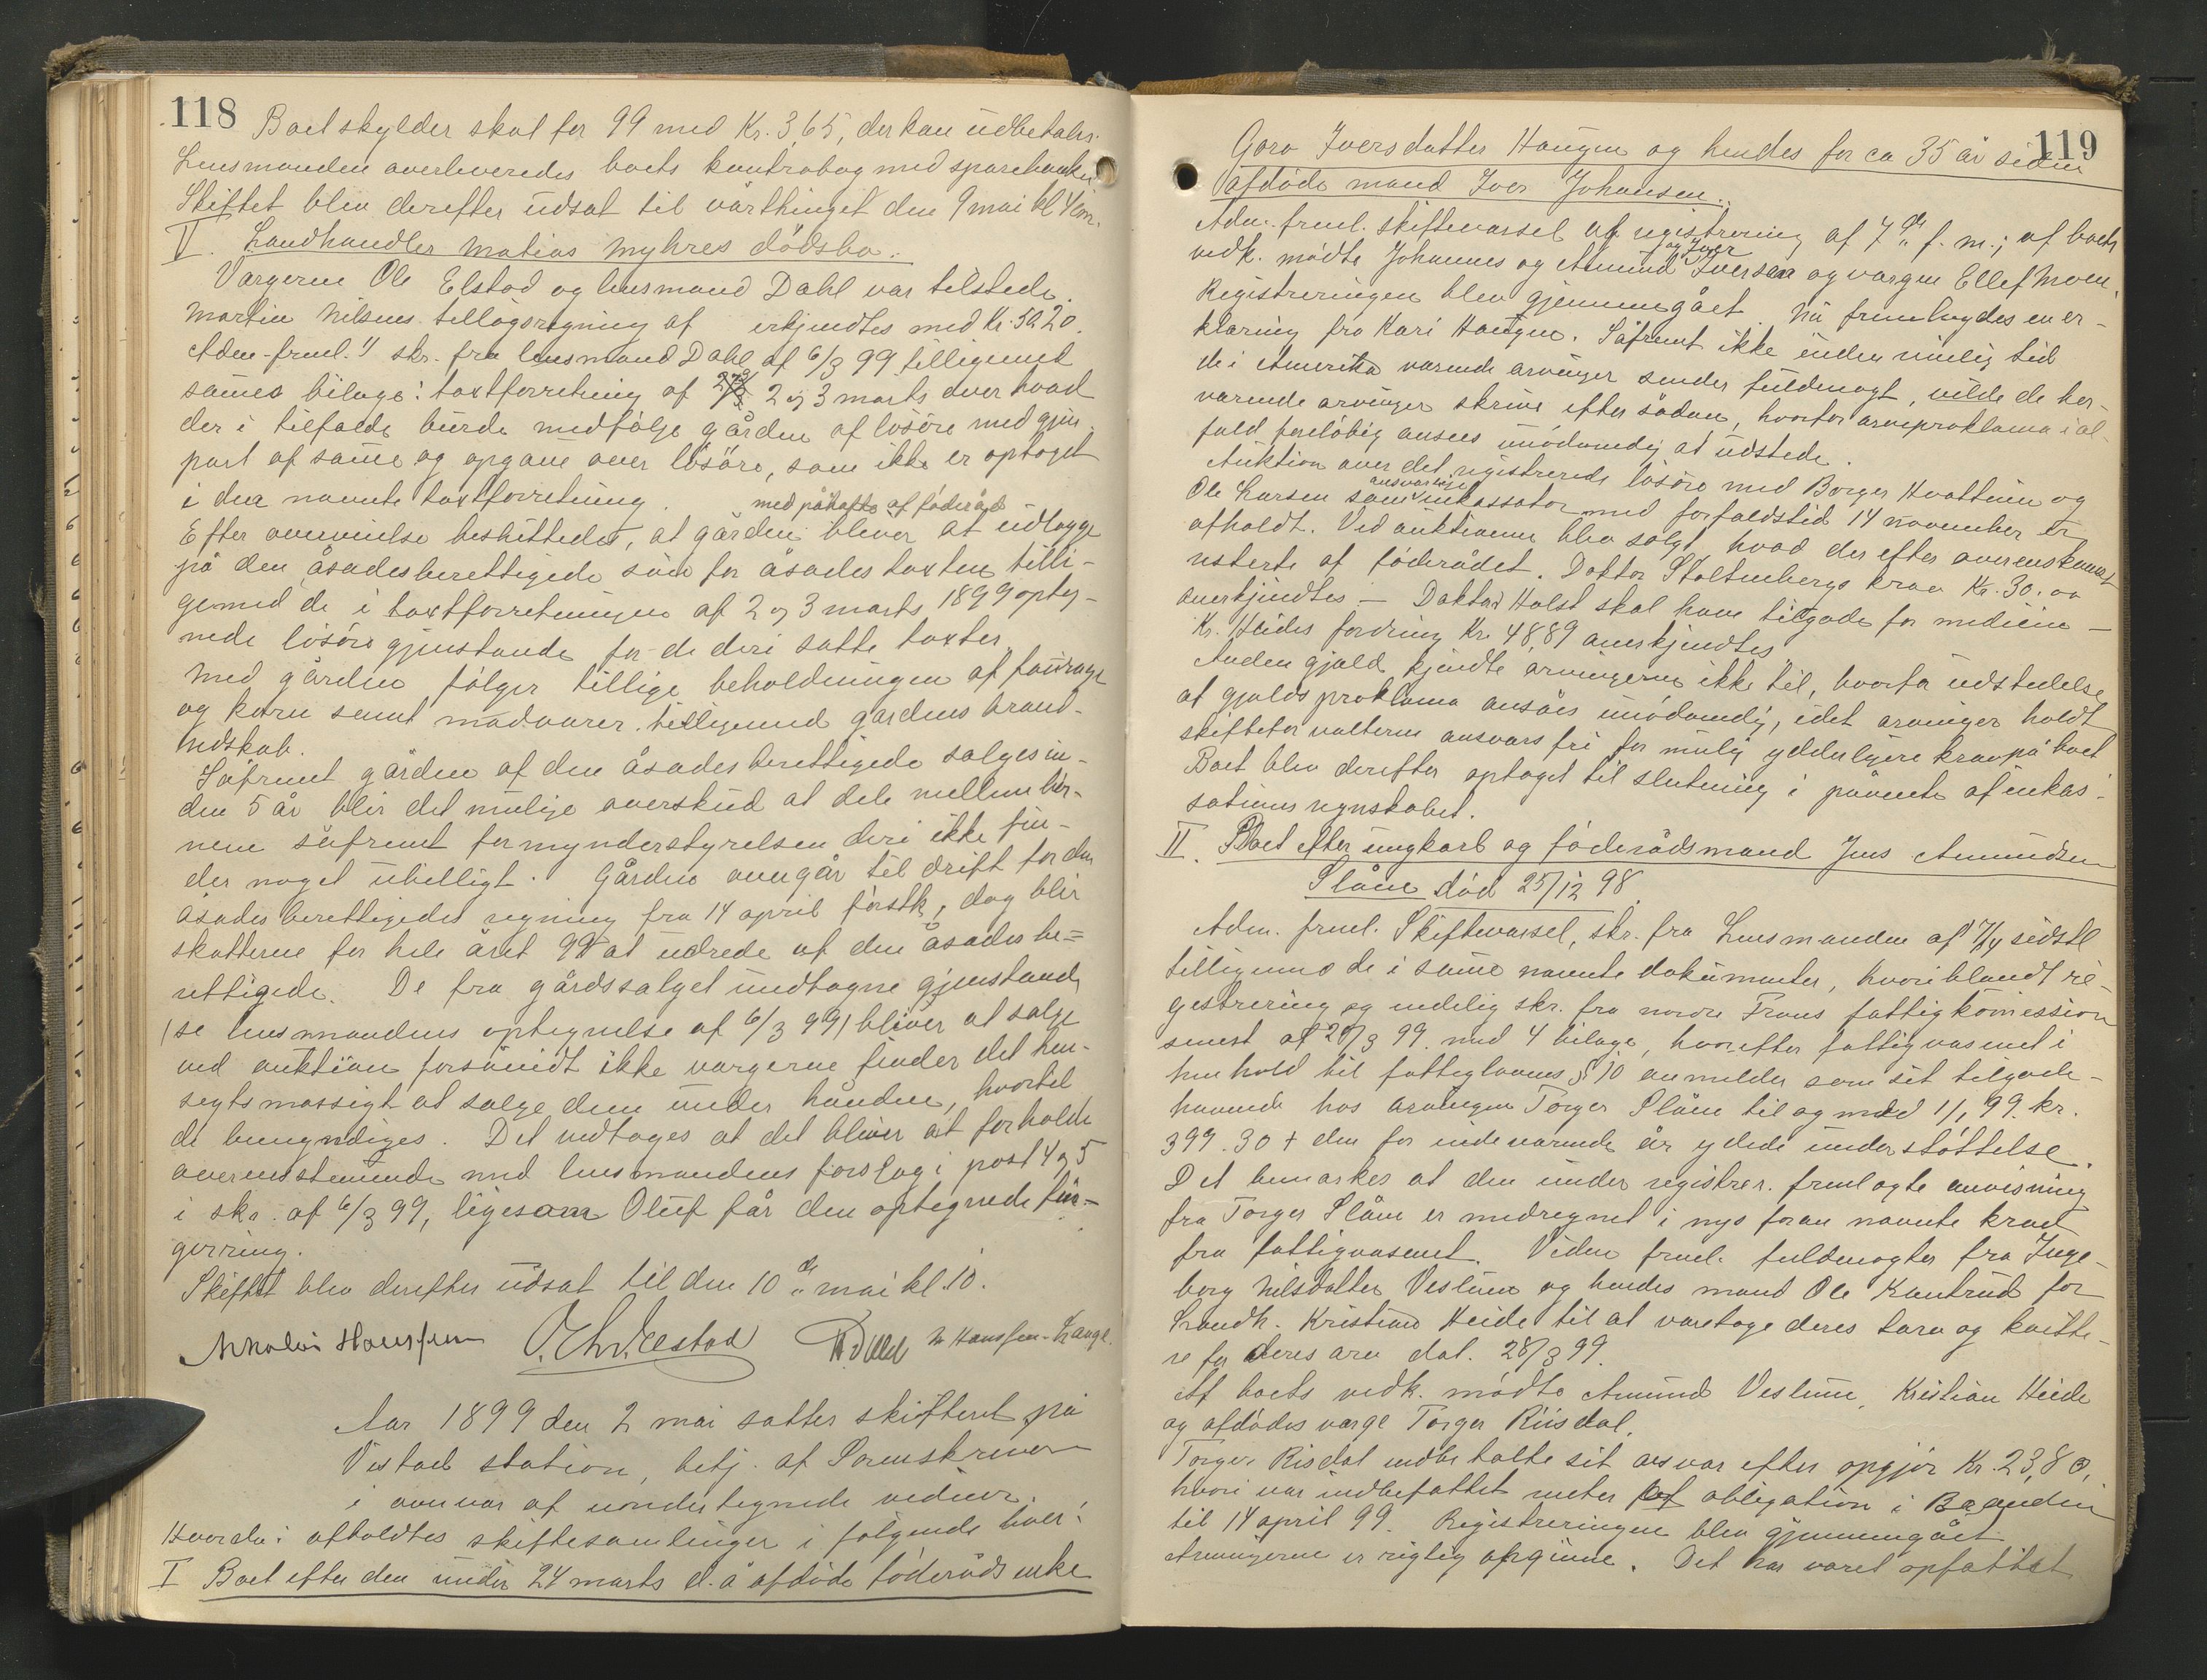 118
Boet skylder skat for 99 med Kr. 3,65, der kan udbetales.
Lensmanden overleveredes boets kontrabog med sparebanken
Skiftet blev derefter udsat til vårthinget den 9 mai kl 4 em.
V. Landhandler Matias Myhres dödsbo.
Værgerne Ole Elstad og lensmand Dahl var tilstede.
Martin Nilsens tillægsregning af erkjendtes med Kr. 50.20.
Adm. freml. 1) skr. fra lensmand Dahl af 6/3 99 tilligemed
sammes bilage: taxtforretning af 2 og 3 marts over hvad
der i tilfælde burde medfölge gården af lösöre med gjen-
part af samme og opgave over lösöre, som ikke er optaget
i den nævnte taxtforretning.
med påhefte af föderåd
Efter overveielse besluttedes, at gården bliver at udlægge
på den åsædesberettigede sön for åsædestaxten tilli-
gemed de i taxtforretningen af 2 og 3 marts 1899 opteg-
nede lösöregjenstande for de deri satte taxter.
Med gården fölger tillige beholdningen af fourage
og korn samt madvarer tilligemed gårdens brand-
redskab.
Såfremt gården af den åsædesberettigede sælges in-
den 5 år blir det mulige overskud at dele mellem bör-
nene såfremt formynderstyrelsen deri ikke fin-
der noget ubilligt. Gården overgår til drift for den
åsædesberettigedes regning fra 14 april förstk, dog blir
skatterne for hele året 99 at udrede af den åsædesbe=
rettigede. De fra gårdssalget undtagne gjenstande
(se lensmandens optegnelse af 6/3 99) bliver at sælge
ved auktion forsåvidt ikke værgerne finder det hen-
segtsmæssigt at sælge dem under hånden, hvortil
de bemyndiges. Det vedtoges at det bliver at forholde
overensstemmende med lensmandens forslag i post 4 og 5
i skr. af 6/3 99, ligesom Oluf får den optegnede fin-
gerring.
Skiftet blev derefter udsat til den 10de mai kl. 10.
Nikolai Hanssen O. Chr. Elstad P. Dahl N. Hanssen-Hauge.
Aar 1899 den 2 mai sattes skifteret på
Vestad station, betj. af Sorenskriveren
i overvær af undertegnede vidner.
Hvorda: afholdtes skiftesamlinger i fölgende boer:
I Boet efter den under 24 marts d. å afdöde föderådsenke
119
Goro Iversdatter Haugen og hendes for ca 35 år siden
afdöde mand Iver Johansen.
Adm. freml. skiftevarsel og registrering af 7de f. m.; af boets
og Iver
vedk. mödte Johannes og Amund Iversen og værgen Ellef Moen.
Registreringen blev gjennemgået. Nu fremlagdes en er-
klæring fra Kari Haugen. Såfremt ikke inden rimelig tid
de i Amerika værende arvinger sender fuldmagt, vilde de her-
værende arvinger skrive efter sådan, hvorfor arveproklama i al-
fald foreløbig ansees unødvendig at udstede.
Auktion over det registrerede lösöre med Borger Hvattum og
ansvarlige
Ole Larsen som inkassator med forfaldstid 14 november er
afholdt. Ved auktionen blev solgt, hvad der efter overenskomst
resterte af föderådet. Doktor Stoltenbergs krav Kr. 30.00
anerkjendtes. – Doktor Holst skal have tilgode for medicin –
Kr. Heides fordring Kr. 48,89 anerkjendtes
Anden gjæld kjendte arvingerne ikke til, hvorfor udstedelse
af gjældsproklama ansåes unödvendig, idet arvinger holdt
skifteforvalteren ansvarsfri for mulig yderligere krav på boet
Boet blev derefter optaget til slutning i påvente af inkas-
sationsregnskabet.
II. Boet efter ungkarl og föderådsmand Jens Amundsen
Slåen död 25/12 98.
Adm. freml. Skiftevarsel, skr. fra Lensmanden af 17/4 sidstl
tilligemed de i samme nævnte dokumenter, hvoriblandt re-
gistrering og endelig skr. fra nordre Frons fattigkomission
senest af 28/3 99 med 4 bilage, hvorefter fattigvæsenet i
henhold til fattiglovens § 10 anmelder som sit tilgode-
havende hos arvingen Torger Slåen til og med 1/1 99. kr.
399.30 + den for indeværende år ydede understöttelse.
Det bemærkes at den under registrer. fremlagte anvisning
fra Torger Slåen er medregnet i nys foran nævnte krav
fra fattigvæsenet. Viden freml. fuldmagter fra Inge-
borg Nilsdatter Veslum og hendes mand Ole Kantrud for
Landh. Kristian Heide til at varetage deres tarv og kvitte-
re for deres arv dat. 28/3 99.
Af boets vedk. mödte Amund Veslum, Kristian Heide
og afdödes værge Torger Riisdal.
Torger Risdal indbetalte sit ansvar efter opgjör Kr. 23,80,
hvori var indbefattet renter af obligation i Braanden
til 14 april 99. Registreringen blev gjennemgået
Arvingerne er rigtig opgivne. Det har været opfattet